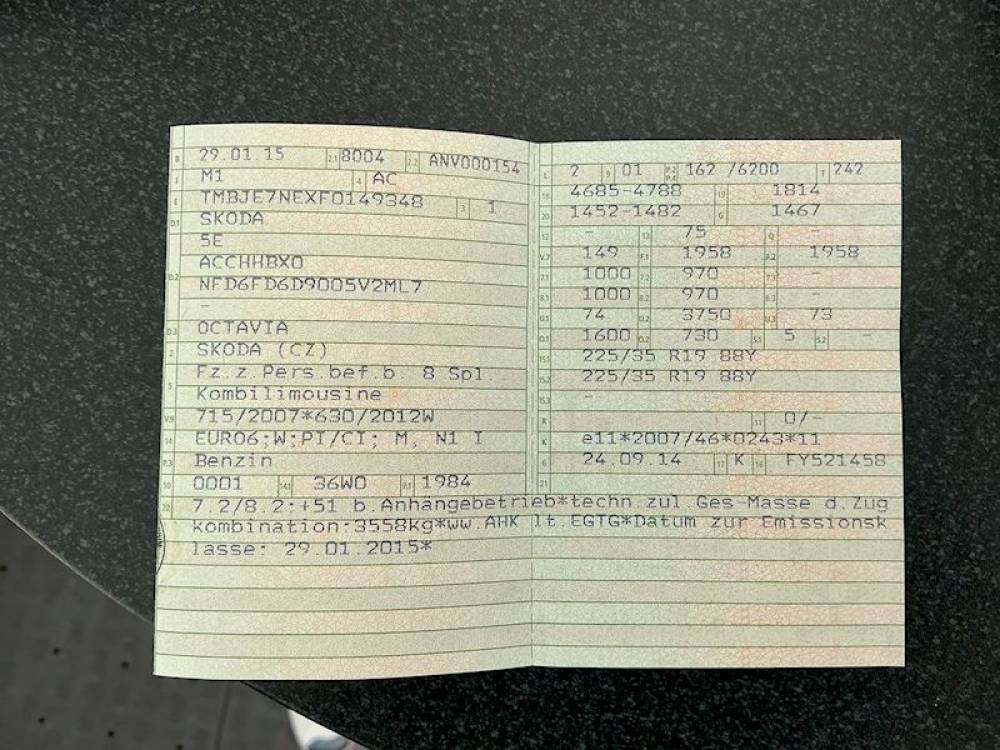 B 29.01.15 2.1 8004 2.2 ANV000154
J M1 4 AC
E TMBJE7NEXF0149348 3 1
D.1 SKODA
5E
D.2 ACCHHBX0
NFD6FD6D9005V2ML7
-
D.3 OCTAVIA
2 SKODA (CZ)
5 Fz.z.Pers.bef.b. 8 Spl.
Kombilimousine
V.9 715/2007*630/2012W
14 EURO6;W;PI/CI; M, N1 I
P.3 Benzin
10 0001 14.1 36W0 P.1 1984
L 2 9 01 P.2 P.4 162 /6200 T 242
18 4685-4788 19 1814
20 1452-1482 G 1467
12 - 13 75 Q -
V.7 149 F.1 1958 F.2 1958
7.1 1000 7.2 970 7.3 -
8.1 1000 8.2 970 8.3 -
U.1 74 U.2 3750 U.3 73
O.1 1600 O.2 730 S.1 5 S.2 -
15.1 225/35 R19 88Y
15.2 225/35 R19 88Y
15.3 -
R 11 0/-
K e11*2007/46*0243*11
6 24.09.14 17 K 16 FY521458
21
22 7.2/8.2:+51 b.Anhängebetrieb*techn zul Ges-Masse d.Zug
kombination:3558kg*ww.AHK lt.EGTG*Datum zur Emissionsk
lasse: 29.01.2015*